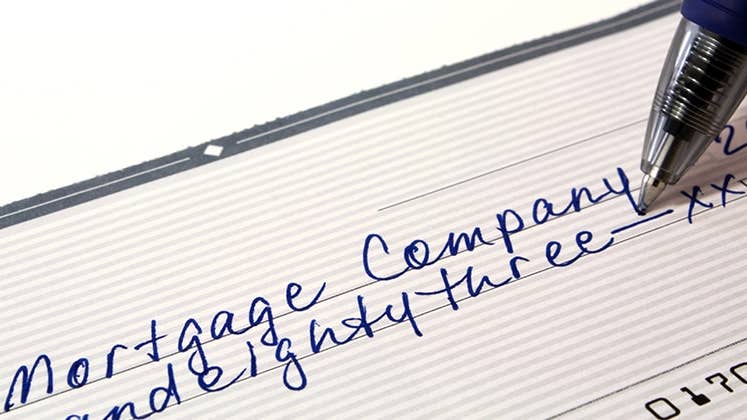 Mortgage Company
and eighty three — xx
0170